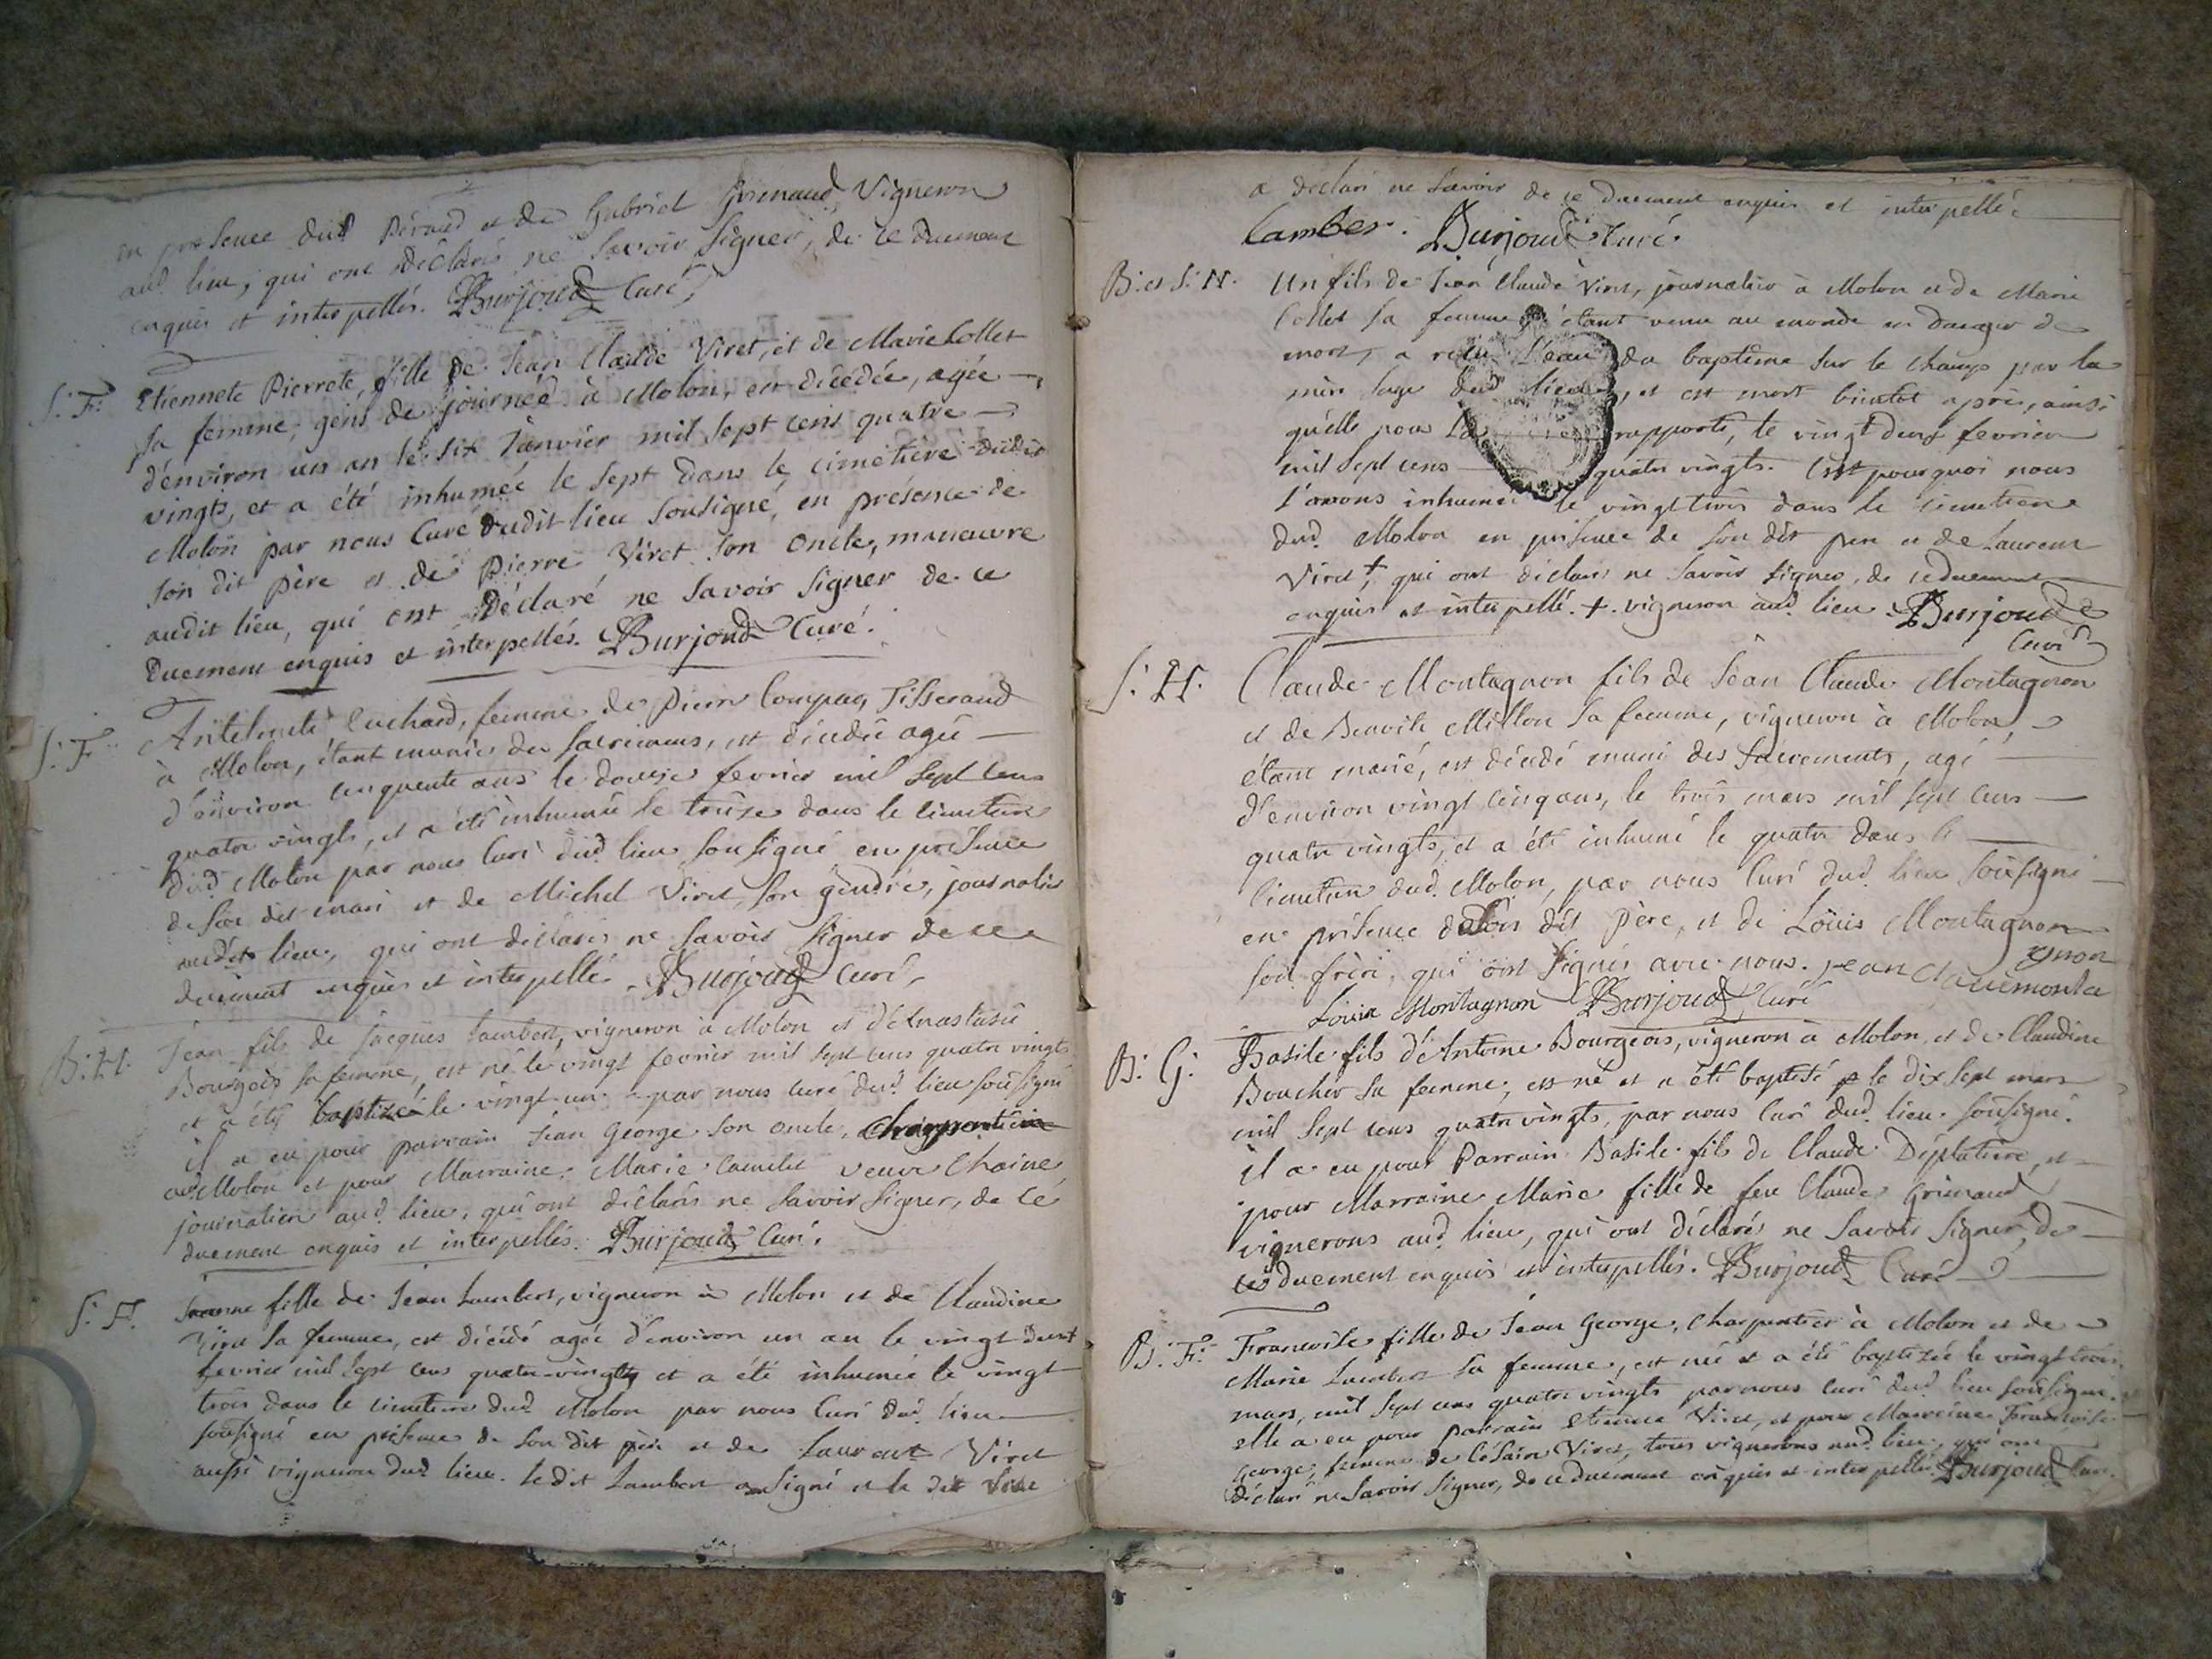 en présence dud Péraud et de Gabriel Grimaud, Vigneron
aud. lieu, qui ont déclarés ne savoir signer, de ce duement
enquis et interpellés. Burjoud Curé
S. F. Etiennete Pierrete, fille de Jean Claude Viret, et de Marie Collet
sa femme, gens de journée à Molon, est décédée, agée
d'environ un an le six Janvier mil sept cens quatre
vingts, et a été inhumée le sept dans le cimetière dudit
Molon par nous Curé dudit lieu sousigné, en présence de
son dit père et de Pierre Viret son Oncle, manœuvre
audit lieu, qui ont déclaré ne savoir signer de ce
Duement enquis et interpellés. Burjoud Curé.
S. F. femme de Pierre Compag, Tisserand
à Molon, étant munie des sacremens, est décédée agée
d'environ cinquante ans le douze fevrier mil sept cens
quatre vingts, et a été inhumée le treize dans le cimetiere
dud. Molon par nous Curé dud. lieu sousigné en présence
de son dit mari et de Michel Viret son gendre, journalier
audit lieu, qui ont déclarés ne savoir signer de ce
duement enquis et interpellé. Burjoud Curé
B. H. Jean fils de Jacques Lambert, vigneron à Molon et d'Anastasie
Bourgeois sa femme, est né le vingt fevrier mil sept cens quatre vingts
et a été baptizé le vingt un par nous curé dud. lieu sousigné
il a eu pour parrain Jean George son oncle, charpentier
aud. Molon et pour Marraine Marie veuve Chaine
journalier aud. lieu, qui ont déclarés ne savoir signer, de ce
duement enquis et interpellés. Burjoud Curé.
S. F. Jeanne fille de Jean Lambert, vigneron à Molon et de Claudine
Viret sa femme, est décédé agée d'environ un an le vingt deux
fevrier mil sept cens quatre-vingts et a été inhumée le vingt
trois dans le cimetiere dud. Molon par nous Curé dud. lieu
sousigné en présence de son dit père et de Laurent Viret
aussi vigneron dud. lieu. ledit Lambert a signé et le dit Viret
a déclaré ne savoir de ce duement enquis et interpellé
Lamber. Burjoud Curé.
B. et S. N. Un fils de Jean Claude Viret, journalier à Molon et de Marie
Collet sa femme étant venu au monde en danger de
mort, a reçu l'eau du baptême sur le champ par la
mère sage dud. lieu, et est mort bientot après, ainsi
qu'elle nous l'a rapporté, le vingt deux fevrier
mil sept cens quatre vingts. C'est pourquoi nous
l'avons inhumé le vingt trois dans le cimetiere
dud. Molon en présence de son dit pere et de Laurent
Viret +, qui ont déclaré ne savoir signer, de ce duement
enquis et interpellé. +. vigneron aud. lieu. Burjoud
Curé
S. H. Claude Montagnon fils de Jean Claude Montagnon
et de Benoite Millon sa femme, vigneron à Molon,
étant marié, est décédé muni des Sacrements, agé
d'environ vingt cinq ans, le trois mars mil sept cens
quatre vingts, et a été inhumé le quatre dans le
cimetiere dud. Molon, par nous Curé dud. lieu sousigné
en présence de son dit Père, et de Louis Montagnon
son frère, qui ont signés avec nous. jean claude monta
gnon
Louis Montagnon Burjoud, Curé
B. G. Basile fils d'Antoine Bourgeois, vigneron à Molon, et de Claudine
Boucher sa femme, est né et a été baptisé le dix sept mars
mil sept cens quatre vingts, par nous Curé dud. lieu sousigné.
il a eu pour Parrain Basile fils de Claude Déplatiere, et
pour Marraine Marie fille de feu Claude Grimaud
vignerons aud. lieu, qui ont déclarés ne savoir signer, de
ce duement enquis et interpellés. Burjoud Curé
B. F. Francoise fille de Jean George, charpentier à Molon et de
Marie Lambert sa femme, est née et a été baptizée le vingt trois
mars, mil sept cens quatre vingts par nous Curé dud. lieu sousigné.
elle a eu pour parrain Etienne Viret, et pour Marraine Francoise
George, femme de Césair Viret, tous vignerons aud. lieu, qui ont
déclaré ne savoir signer, de ce duement enquis et interpellés. Burjoud Curé.